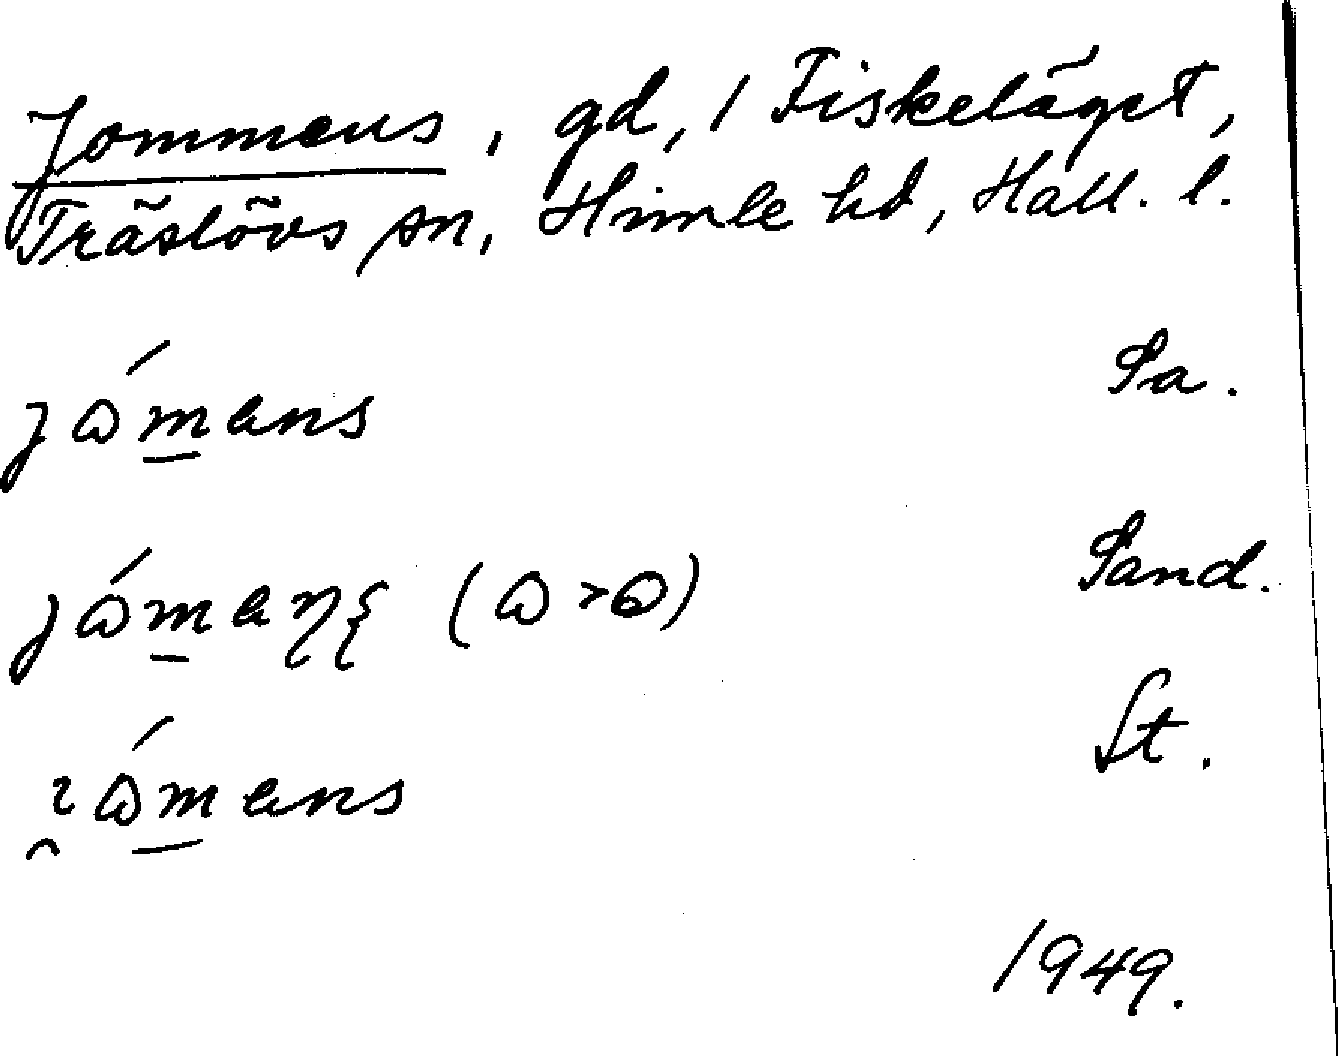 Jommens, gd, i Fiskeläget,
Träslövs sn, Himle hd, Hall. l.
jɷ́mans Sa.
jɷ́maɳʂ (ɷ > ɵ) Sand.
ɷ́mans St.
1949.